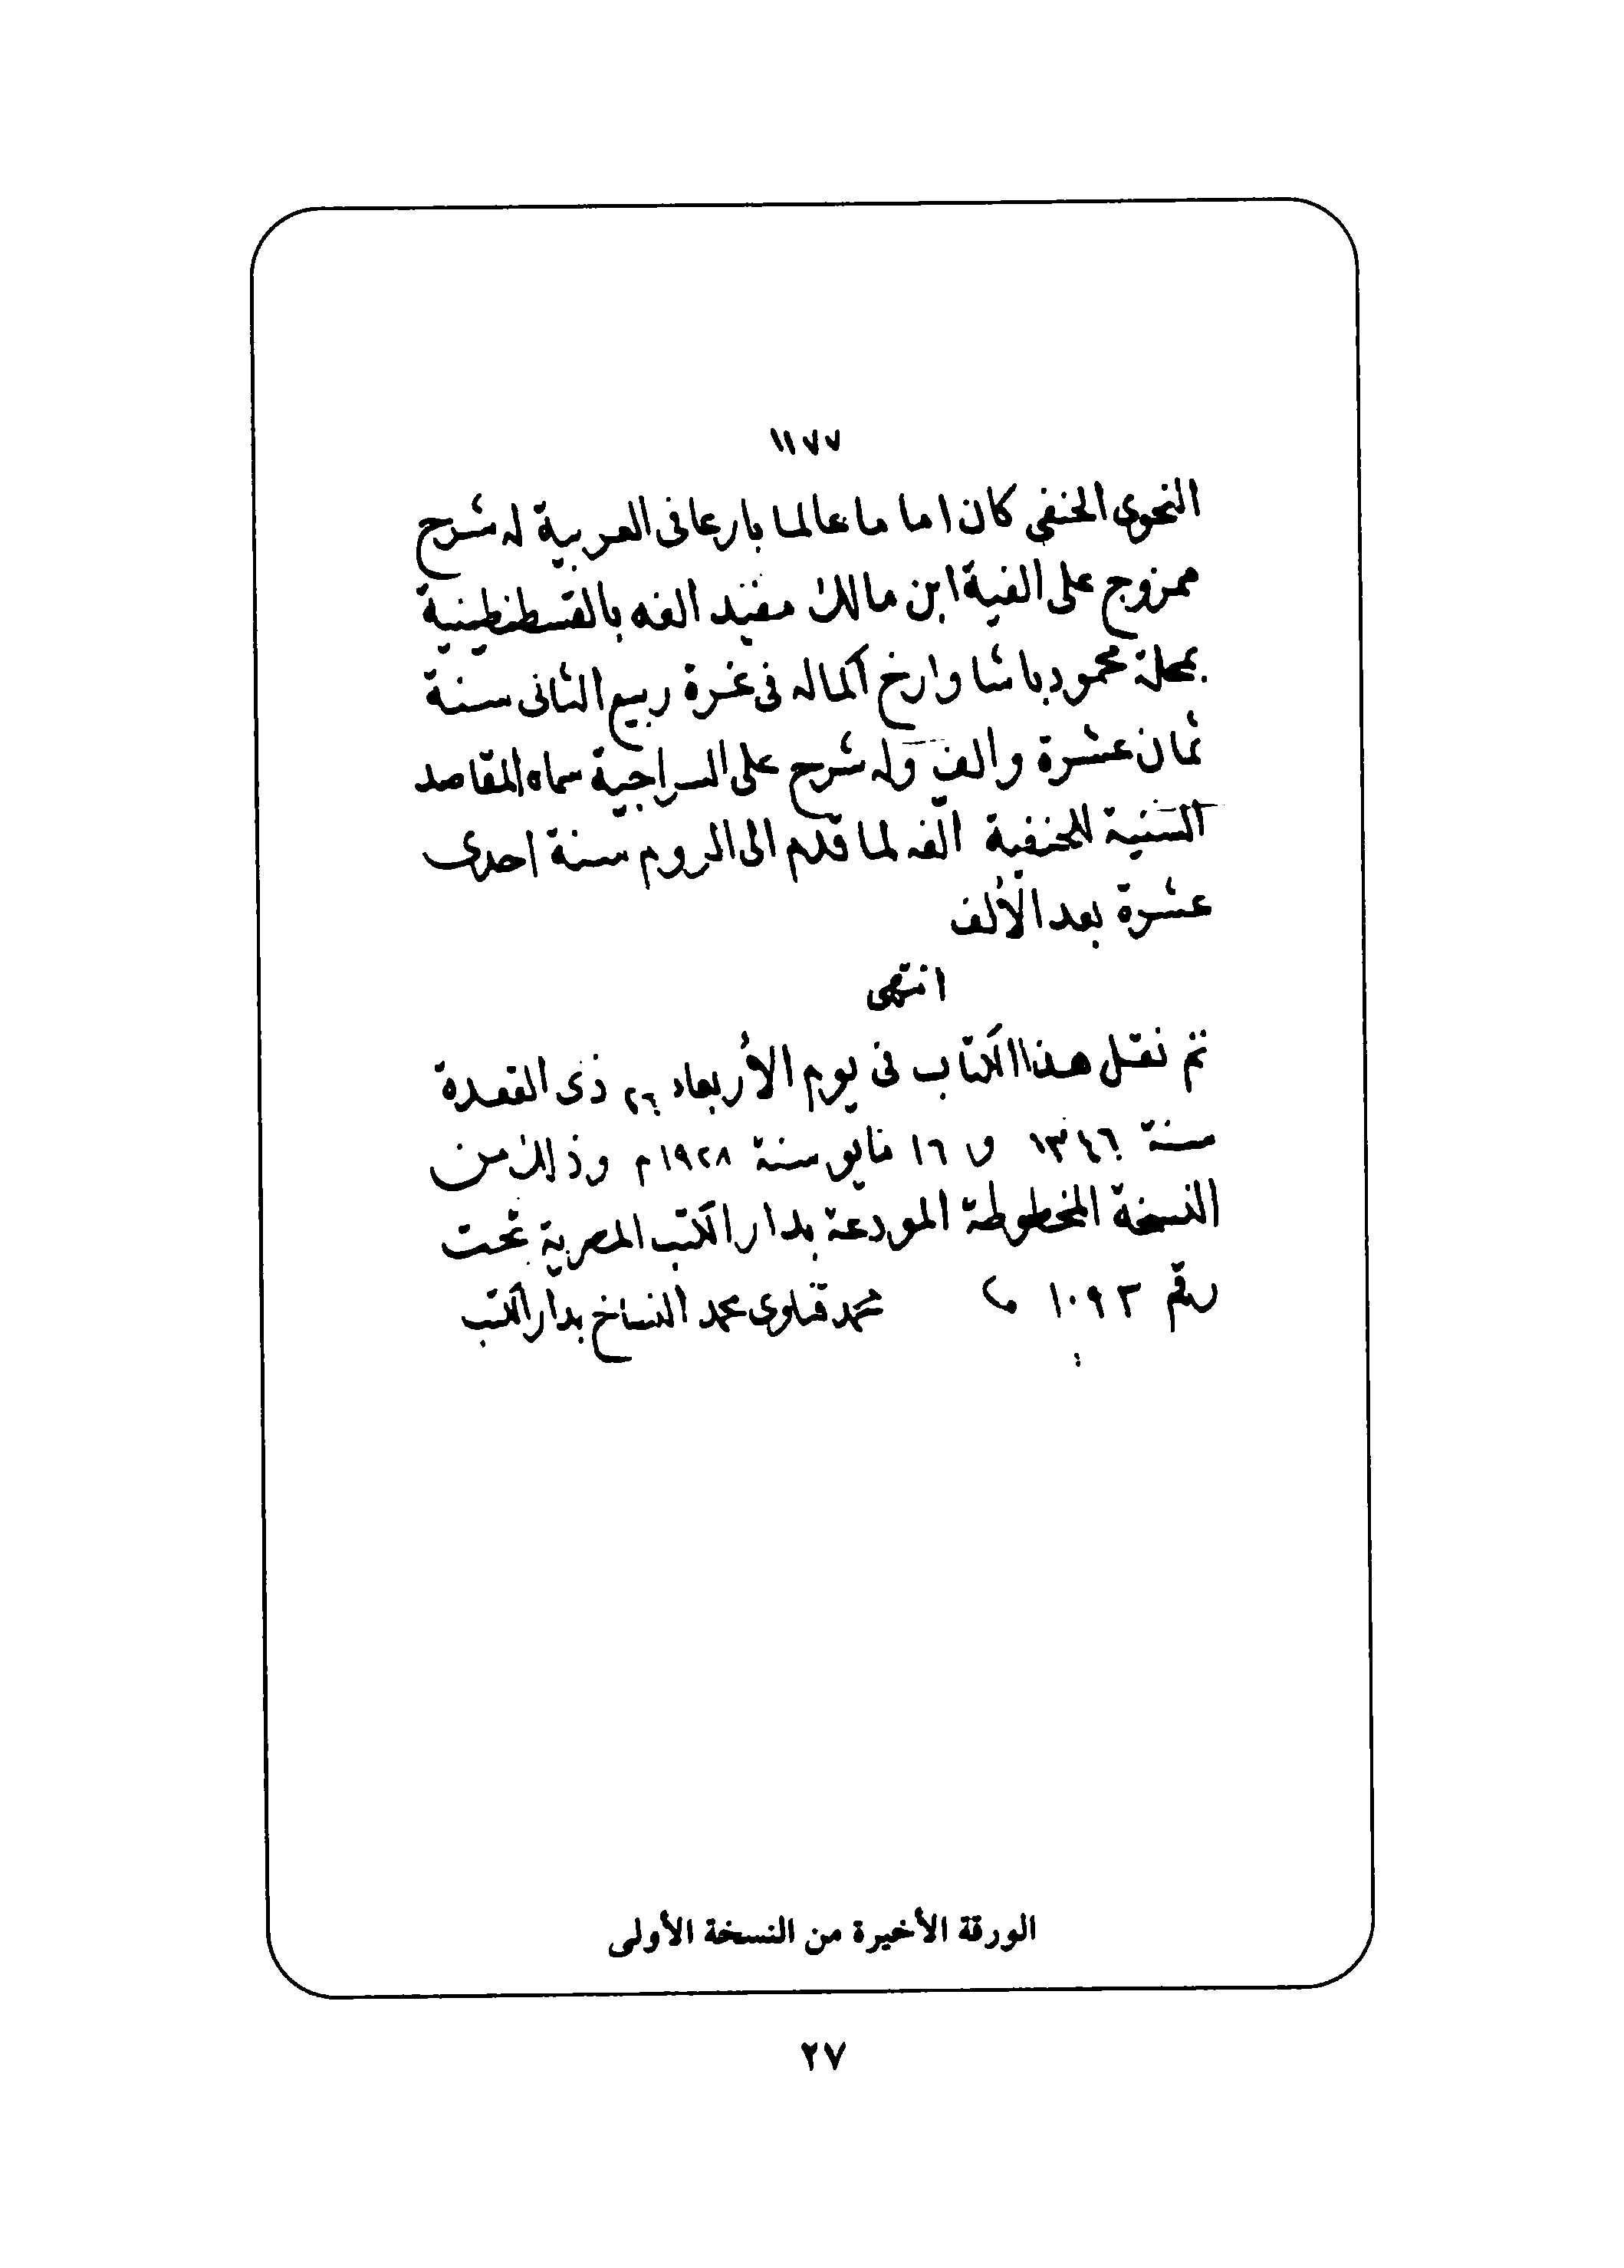 ١١٧٧
النحوى الحنفى كان اماما عالما بارعا فى العربية له شرح
ممزوج على الفية ابن مالك مفيد الفه بالقسطنطينية
بمحلة محمود باشا وارخ اكماله فى غرة ربيع الثانى سنة
ثمان عشرة والف وله شرح على السراجية سماه المقاصد
السنية للحنفية الفه لما قدم الى الروم سنة احدى
عشرة بعد الألف
انتهى
تم نقل هذا الكتاب فى يوم الأربعاء ٢٦ ذى القعدة
سنة ١٣٤٦ و ١٦ مايو سنة ١٩٢٨ م وذلك من
النسخة المخطوطة المودعة بدار الكتب المصرية تحت
رقم ١٠٩٣ محمد قناوى محمد النساخ بدار الكتب
الورقة الأخيرة من النسخة الأولى
٢٧